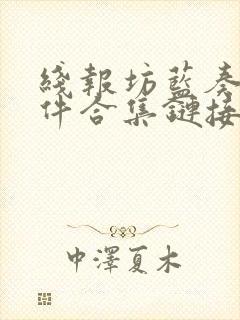 綫報坊藍奏
件合集鏈接
中澤夏木